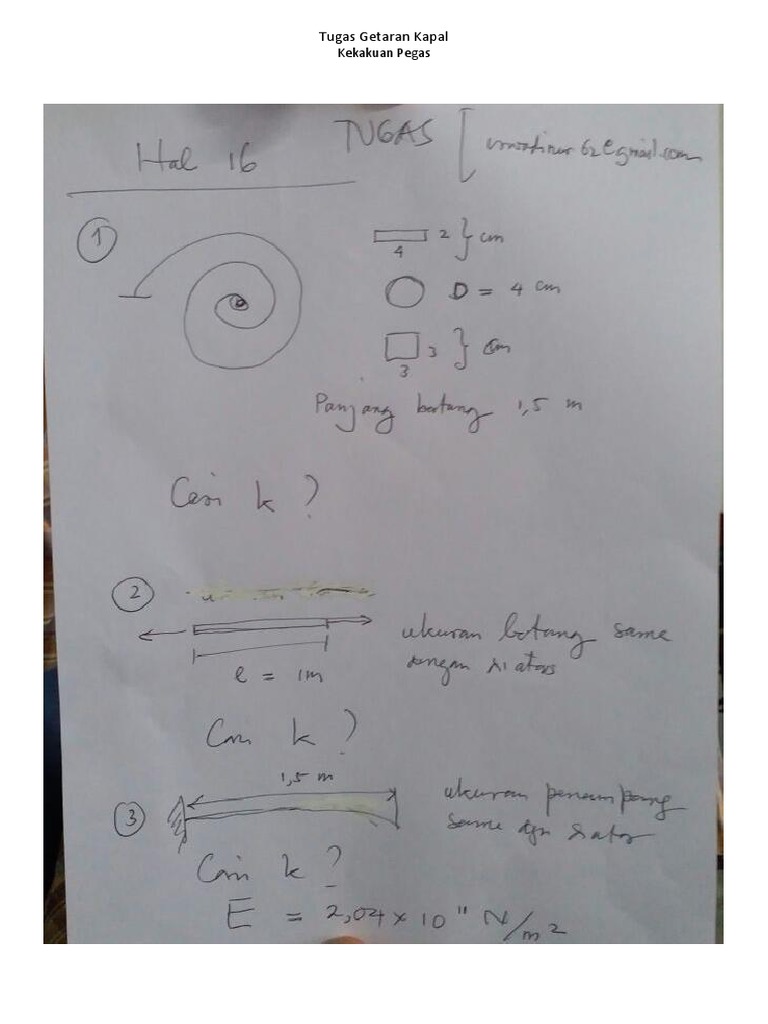 Tugas Getaran Kapal
Kekakuan Pegas
TUGAS
Hal 16
1
2 } cm
4
D = 4 cm
3 } cm
3
Panjang batang 1,5 m
Cari k ?
2
ukuran batang sama
dengan di atas
l = 1m
Cari k ?
1,5 m
3
ukuran penampang
sama dgn diatas
Cari k ?
E = 2,04 x 10¹¹ N/m²